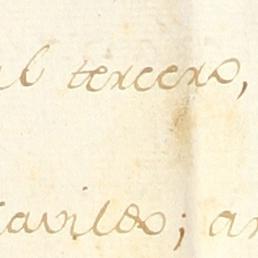 al tercero,
cavildo; an